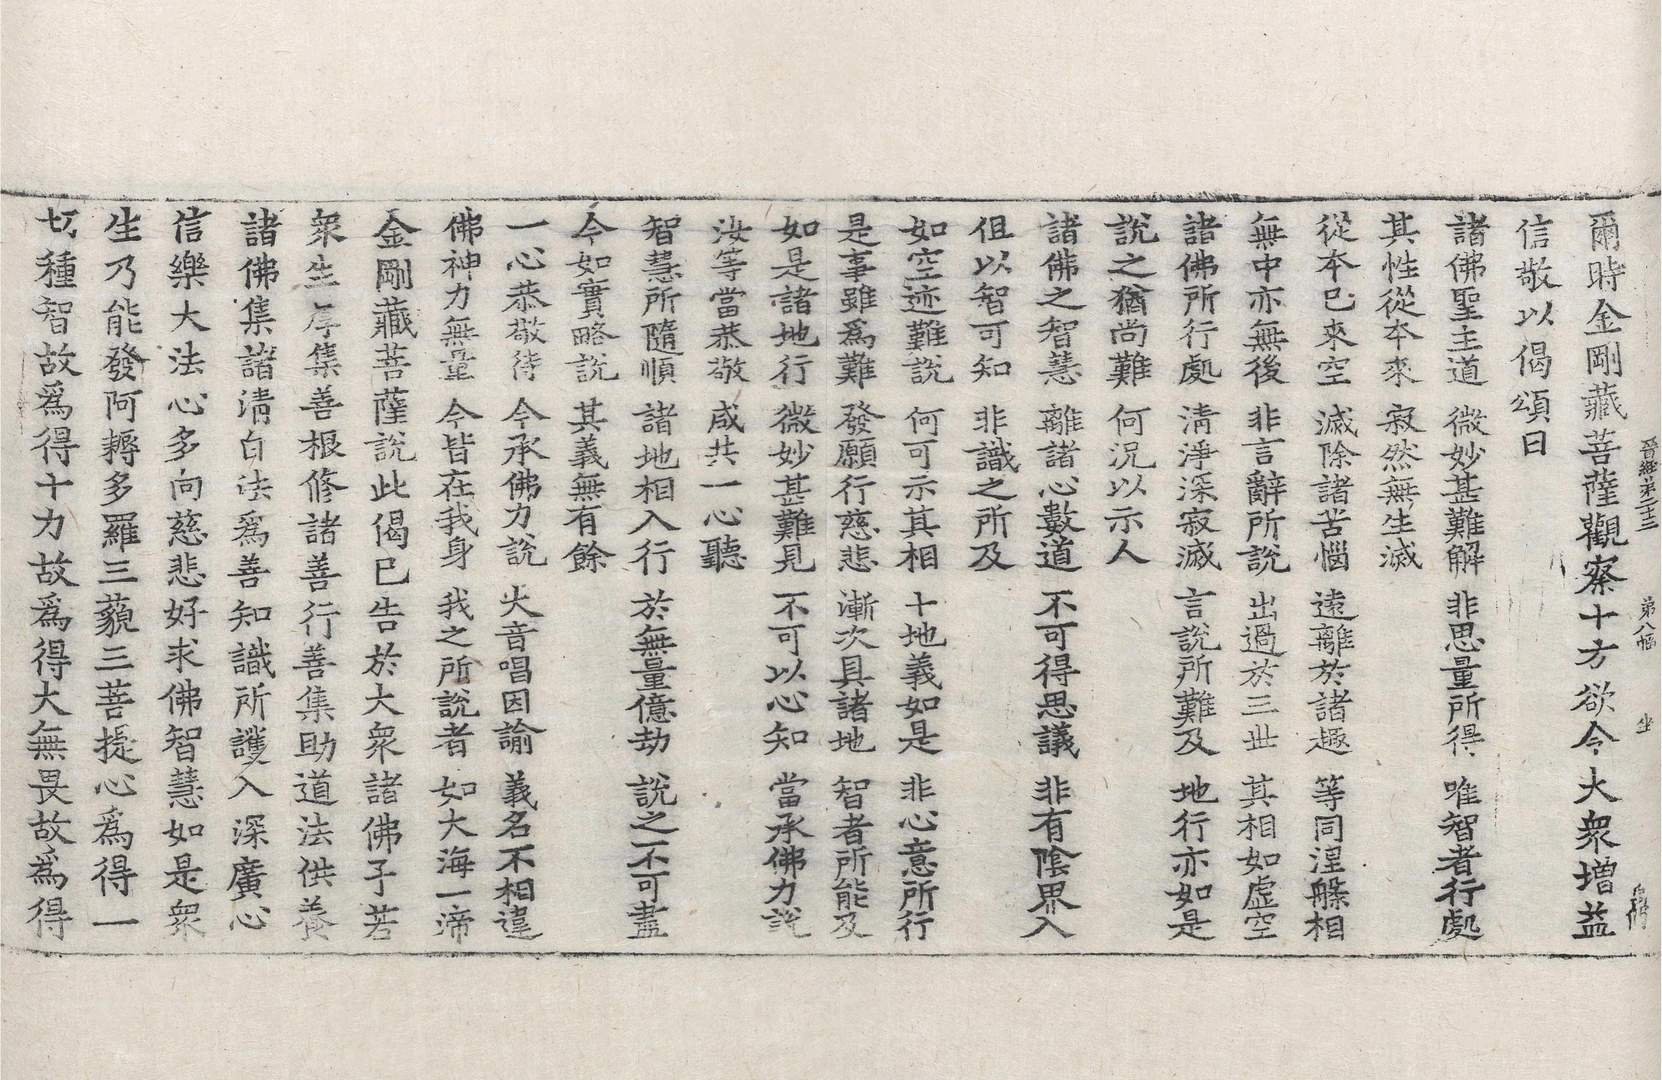 晉經第二十三 第八幅 坐
爾時金剛藏菩薩觀察十方欲令大衆增益
信敬以偈頌曰
諸佛聖主道 微妙甚難解 非思量所得 唯智者行處
其性從本來 寂然無生滅
從本已來空 滅除諸苦惱 遠離於諸趣 等同涅槃相
無中亦無後 非言辭所說 出過於三世 其相如虛空
諸佛所行處 清淨深寂滅 言說所難及 地行亦如是
說之猶尚難 何況以示人
諸佛之智慧 離諸心數道 不可得思議 非有陰界入
但以智可知 非識之所及
如空迹難說 何可示其相 十地義如是 非心意所行
是事雖爲難 發願行慈悲 漸次具諸地 智者所能及
如是諸地行 微妙甚難見 不可以心知 當承佛力說
汝等當恭敬 咸共一心聽
智慧所隨順 諸地相入行 於無量億劫 說之不可盡
今如實略說 其義無有餘
一心恭敬待 今承佛力說 大音唱因諭 義名不相違
佛神力無量 今皆在我身 我之所說者 如大海一渧
金剛藏菩薩說此偈已告於大衆諸佛子若
衆生厚集善根修諸善行善集助道法供養
諸佛集諸清白法爲善知識所護入深廣心
信樂大法心多向慈悲好求佛智慧如是衆
生乃能發阿耨多羅三藐三菩提心爲得一
切種智故爲得十力故爲得大無畏故爲得